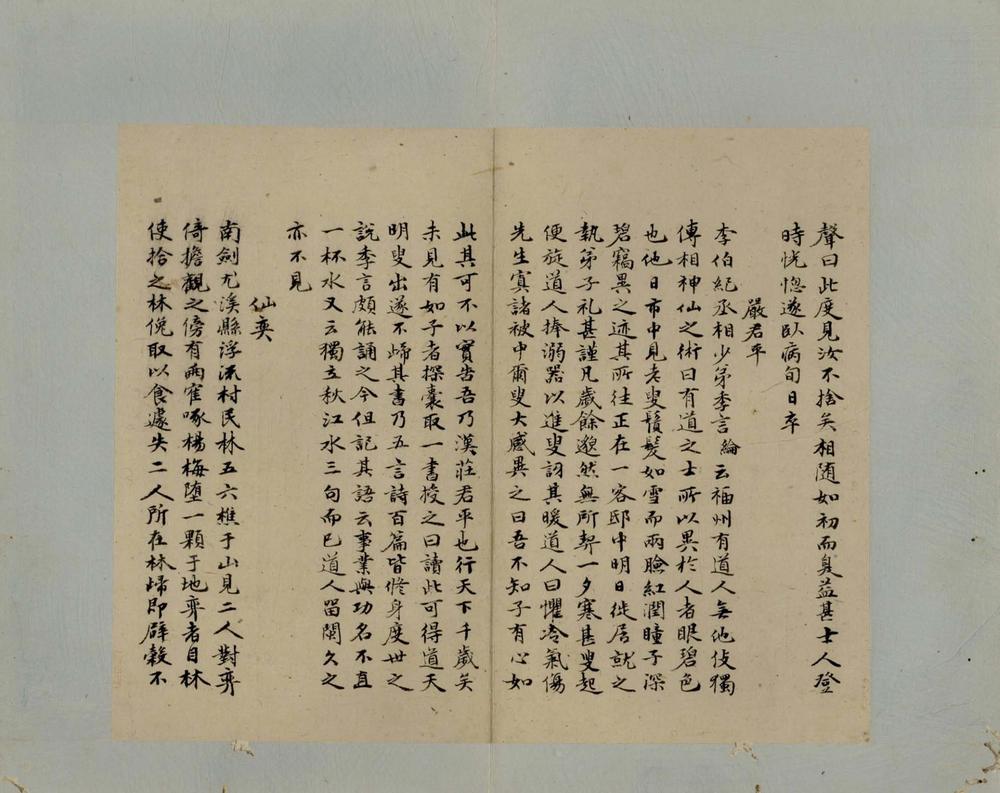 聲曰此度見汝不捨矣相随如初而臭益甚士人登
時恍惚遂卧病旬日卒
嚴君平
李伯紀丞相少弟季言綸云福州有道人無他伎獨
傳相神仙之術曰有道之士所以異於人者眼碧色
也他日市中見老叟鬚髮如雪而兩臉紅潤瞳子深
碧竊異之迹其所往正在一客邸中明日徙居就之
執弟子礼甚謹凡歲餘邈然無所契一夕寒甚叟起
便旋道人捧溺器以進叟訝其暖道人曰懼冷氣傷
先生寘諸被中爾叟大感異之曰吾不知子有心如
此其可不以實告吾乃漢莊君平也行天下千歲矣
未見有如子者探囊取一書授之曰讀此可得道天
明叟出遂不歸其書乃五言詩百篇皆修身度世之
說季言頗能誦之今但記其語云事業與功名不直
一杯水又云獨立秋江水三句而已道人留閩久之
亦不見
仙奕
南劍尤溪縣浮流村民林五六樵于山見二人對弈
倚擔觀之傍有兩寉啄楊梅墮一顆于地弈者目林
使拾之林俛取以食遽失二人所在林歸即辟穀不